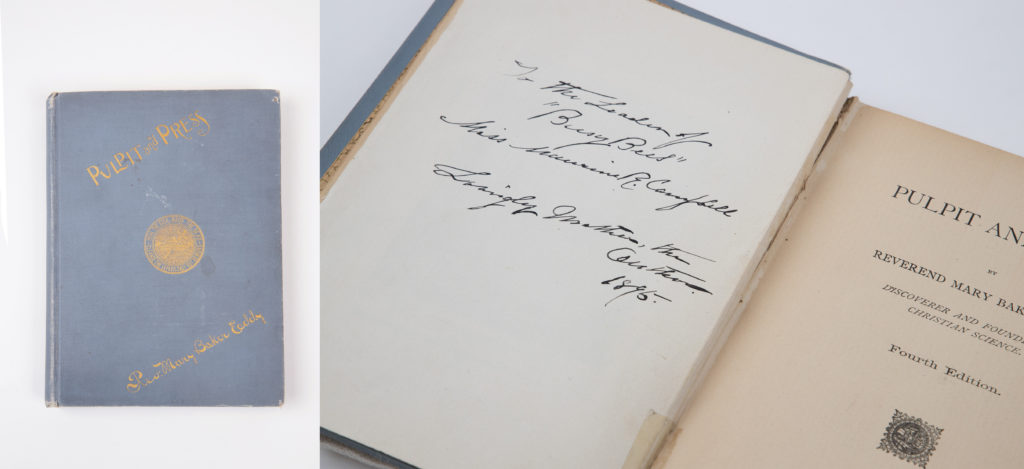 PULPIT and PRESS
Rev. Mary Baker Eddy
To the Leader of
"Busy Bees"
Miss Maurine R. Campbell
Lovingly Mother, the
Author.
1895.
PULPIT AN
BY
REVEREND MARY BAK
DISCOVERER AND FOUNDE
CHRISTIAN SCIENCE.
Fourth Edition.